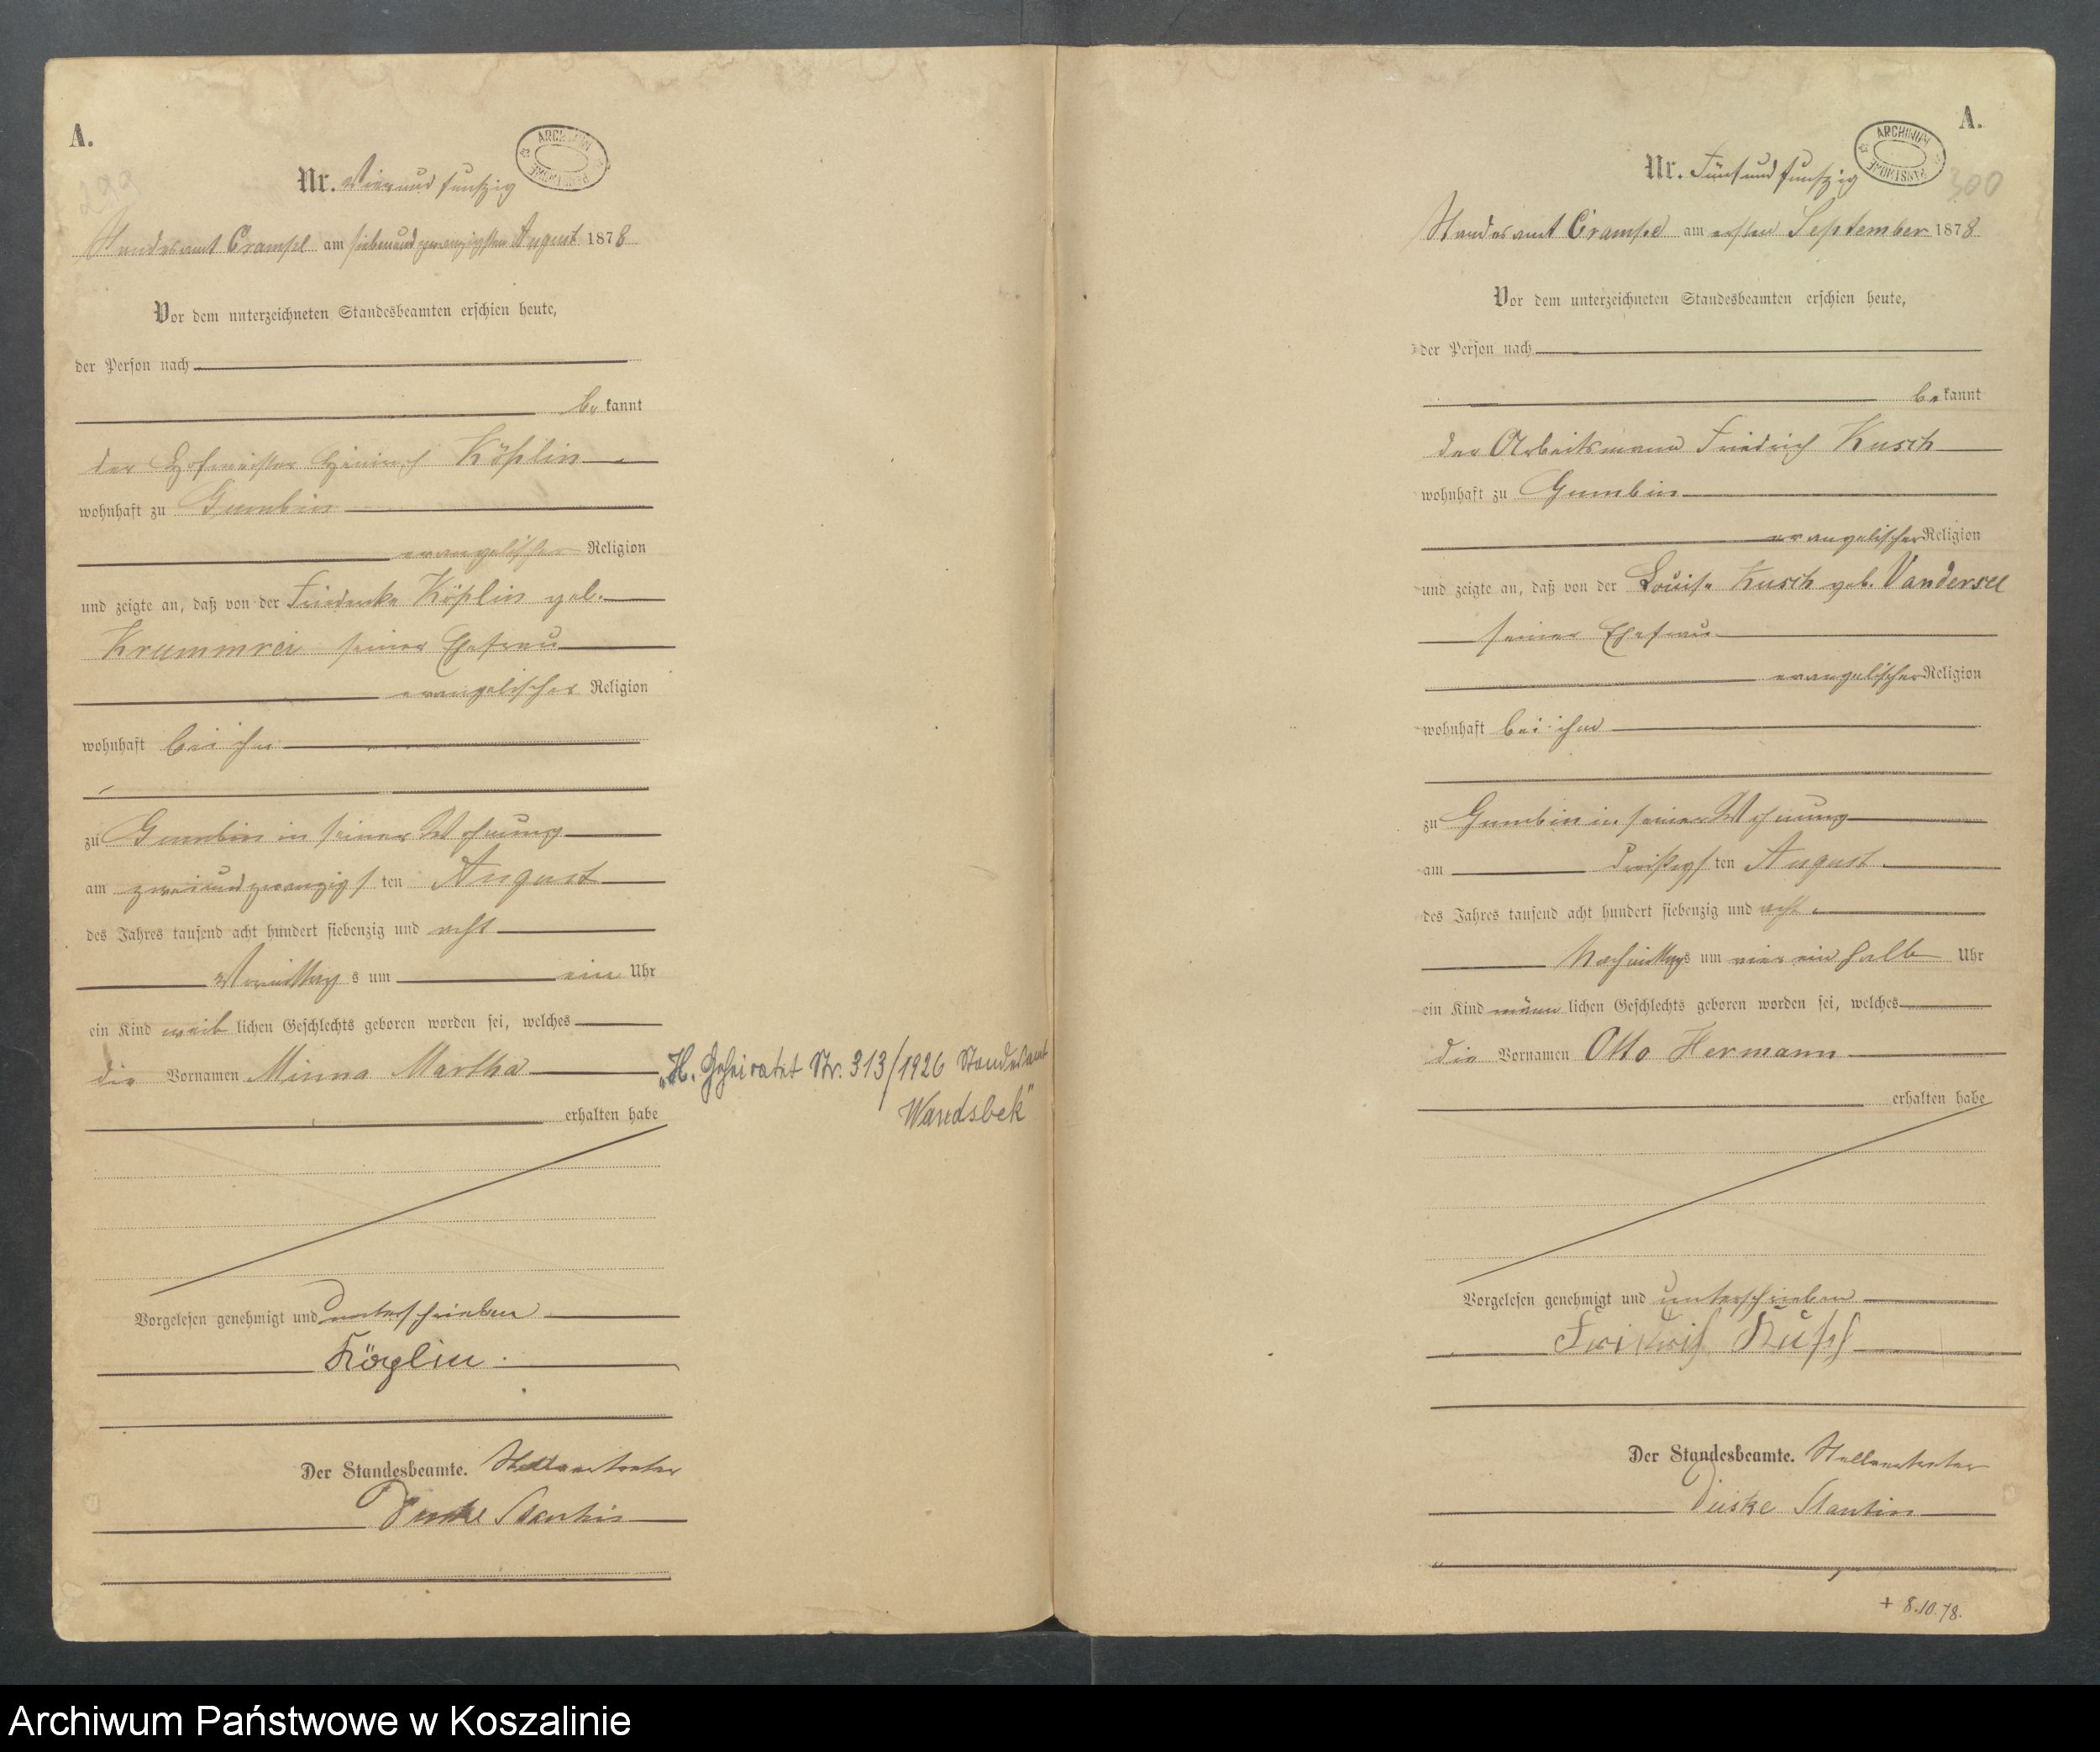 A.
299
ARCHIWUM PAŃSTWOWE
Nr. Vierundfunfzig
Standesamt Crampe am siebenundzwanzigsten August 1878
Vor dem unterzeichneten Standesbeamten erschien heute,
der Person nach
bekannt
der Hofmeister Heinrich Köplin
wohnhaft zu Gumbin
evangelischer Religion
und zeigte an, daß von der Friederike Köplin geb.
Krummrei seiner Ehefrau
evangelischer Religion
wohnhaft bei ihm
zu Gumbin in seiner Wohnung
am zweiundzwanzigsten August
des Jahres tausend acht hundert siebenzig und acht
Vormittags um ein Uhr
ein Kind weiblichen Geschlechts geboren worden sei, welches
die Vornamen Minna Martha
erhalten habe
"H. Geheiratet Nr. 313/1926 Standesamt
Wandsbek"
Vorgelesen genehmigt und unterschrieben
Köplin.
Der Standesbeamte. Stellvertreter
Stantin
A.
300
ARCHIWUM PAŃSTWOWE
Nr. Fünfundfunfzig
Standesamt Crampe am ersten September 1878
Vor dem unterzeichneten Standesbeamten erschien heute,
der Person nach
bekannt
der Arbeitsmann Friedrich Kusch
wohnhaft zu Gumbin
evangelischer Religion
und zeigte an, daß von der Louise Kusch geb. Vandersee
seiner Ehefrau
evangelischer Religion
wohnhaft bei ihm
zu Gumbin in seiner Wohnung
am dreißigsten August
des Jahres tausend acht hundert siebenzig und acht
Nachmittags um vier ein halb Uhr
ein Kind männlichen Geschlechts geboren worden sei, welches
die Vornamen Otto Hermann
erhalten habe
Vorgelesen genehmigt und unterschrieben
Friedrich Kusch
Der Standesbeamte. Stellvertreter
Düske Stantin
+ 8.10.78.
Archiwum Państwowe w Koszalinie